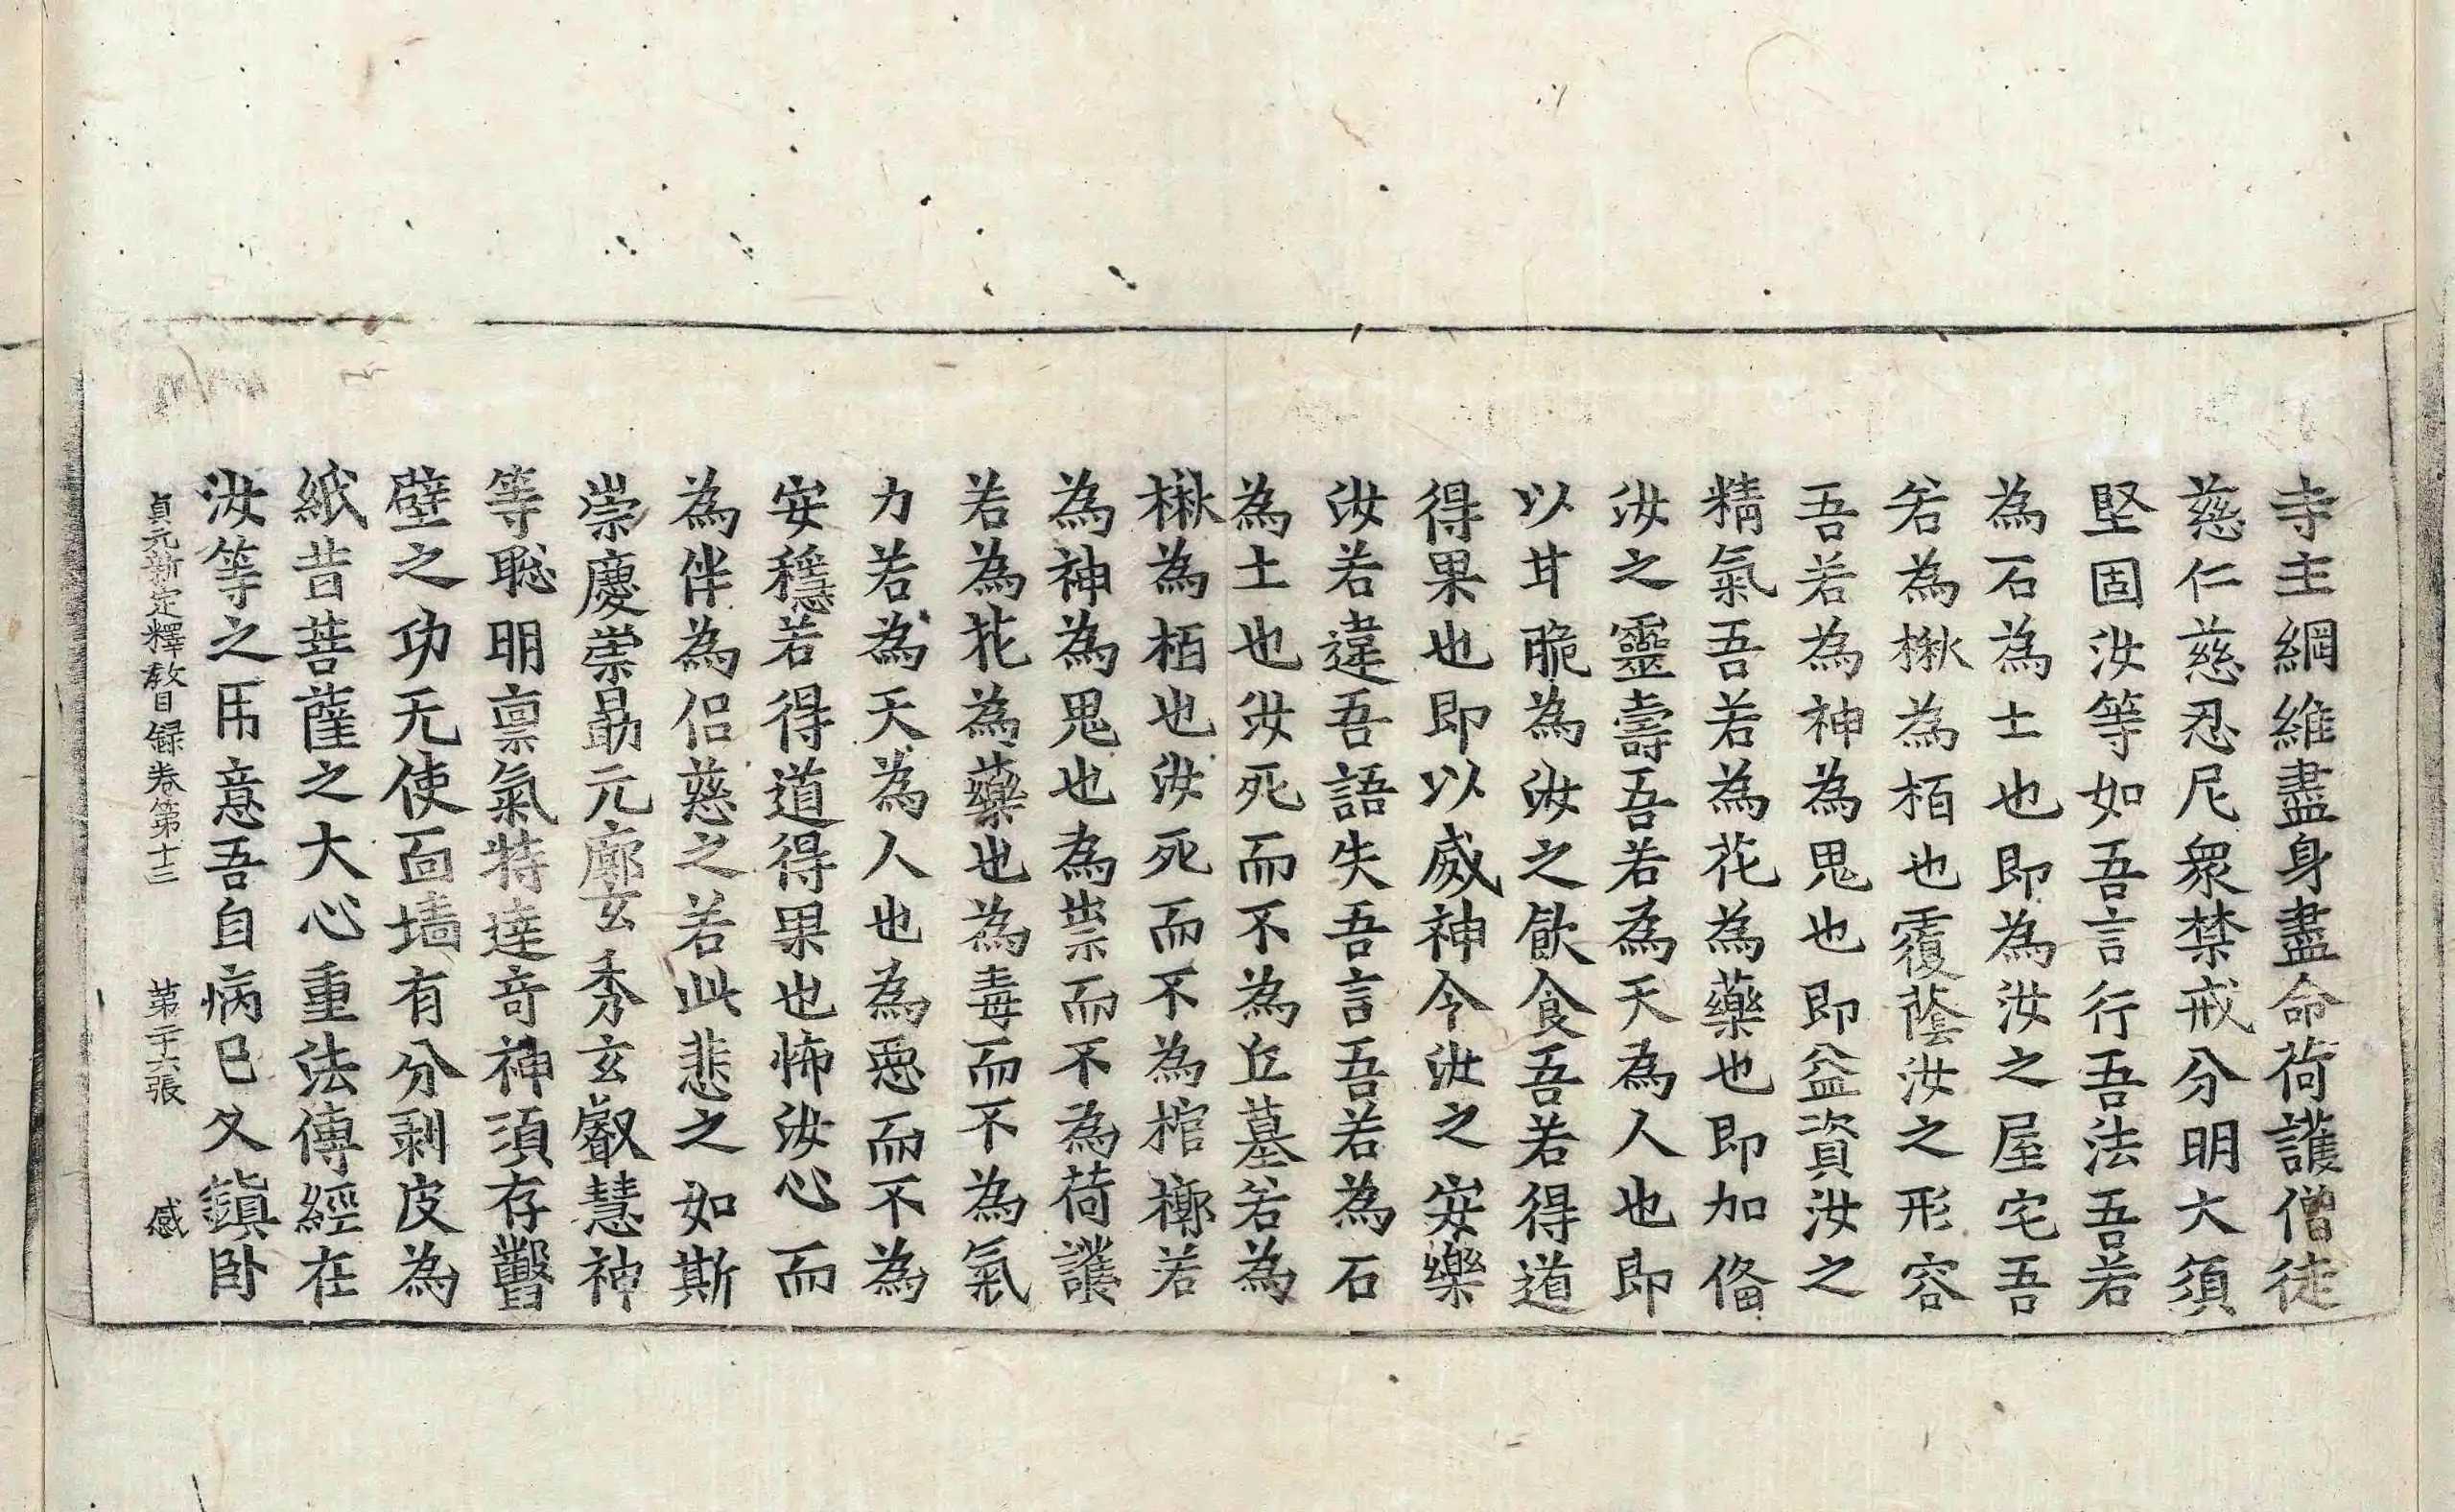 寺主綱維盡身盡命荷護僧徒
慈仁慈忍尼衆禁戒分明大須
堅固汝等如吾言行吾法吾若
為石為土也即為汝之屋宅吾
若為楸為栢也覆蔭汝之形容
吾若為神為鬼也即益資汝之
精氣吾若為花為藥也即加俻
汝之靈壽吾若為天為人也即
以甘脆為汝之飲食吾若得道
得果也即以威神令汝之安樂
汝若違吾語失吾言吾若為石
為土也汝死而不為丘墓若為
楸為栢也汝死而不為棺槨若
為神為鬼也為祟而不為荷護
若為花為藥也為毒而不為氣
力若為天為人也為惡而不為
安穩若得道得果也怖汝心而
為伴為侣慈之若此悲之如斯
崇慶崇勗元廓玄秀玄叡慧神
等聡明禀氣特達竒神須存豎
壁之功无使面墻有分剥皮為
紙昔菩薩之大心重法傳經在
汝等之用意吾自病已久鎮卧
貞元新定釋教目録卷第十三　第二十六張　感